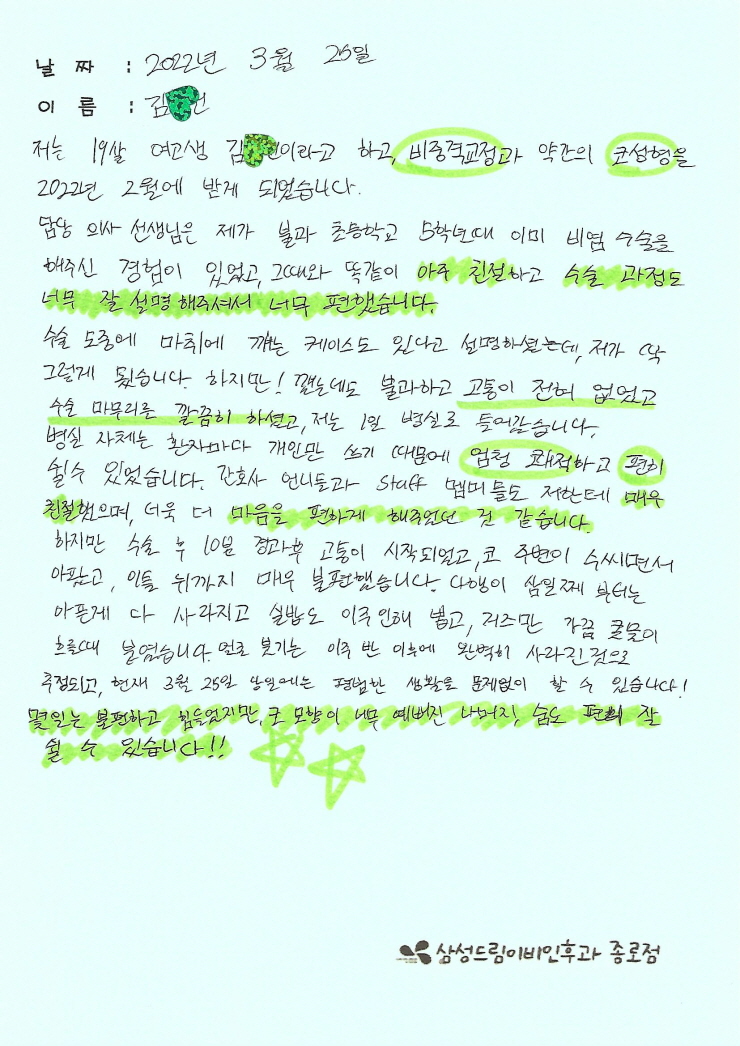 날 짜 : 2022년 3월 25일
이 름 : 김 언
저는 19살 여고생 김 언이라고 하고, 비중격교정과 약간의 코성형을
2022년 2월에 받게 되었습니다.
담당 의사 선생님은 제가 불과 초등학교 5학년때 이미 비염 수술을
해주신 경험이 있었고, 그때와 똑같이 아주 친절하고 수술 과정도
너무 잘 설명해주셔서 너무 편했습니다.
수술 도중에 마취에 깨는 케이스도 있다고 설명하셨는데, 제가 딱
그렇게 됬습니다. 하지만! 깼는데도 불과하고 고통이 전혀 없었고
수술 마무리를 깔끔히 하셨고, 저는 1일 병실로 들어갔습니다.
병실 자체는 환자마다 개인만 쓰기 때문에 엄청 쾌적하고 편히
쉴수 있었습니다. 간호사 언니들과 staff 멤버들도 저한테 매우
친절했으며, 더욱 더 마음을 편하게 해주었던 것 같습니다.
하지만 수술 후 10분 경과후 고통이 시작되었고, 코 주변이 수씨면서
아팠고, 이틀 뒤까지 매우 불편했습니다. 다행이 삼일째 부터는
아픈게 다 사라지고 실밥도 이주안에 뽑고, 거즈만 가끔 콧물이
흐를때 붙였습니다. 얼로 붓기는 이주 반 이후에 완벽히 사라진것으로
추정되고, 현재 3월 25일 당일에는 평범한 생활을 문제없이 할 수 있습니다!
몇일는 불편하고 힘들었지만, 코 모양이 너무 예뻐진 나머지, 숨도 편히 잘
쉴 수 있습니다!!
삼성드림이비인후과 종로점